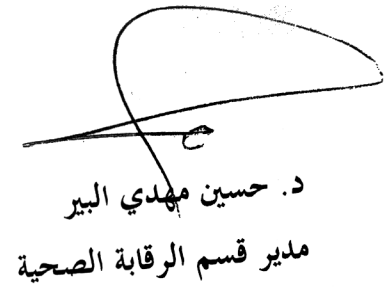 د. حسين مهدي البير
مدير قسم الرقابة الصحية